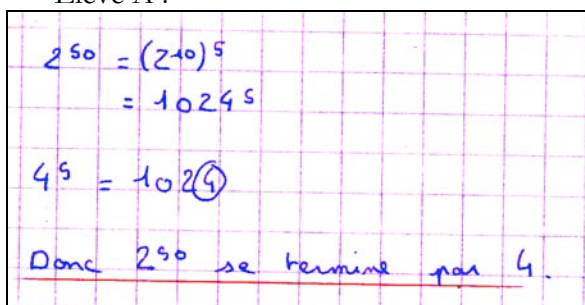 Elève A :
2⁵⁰ = (2¹⁰)⁵
= 1024⁵
4⁵ = 1024
Donc 2⁵⁰ se termine par 4.